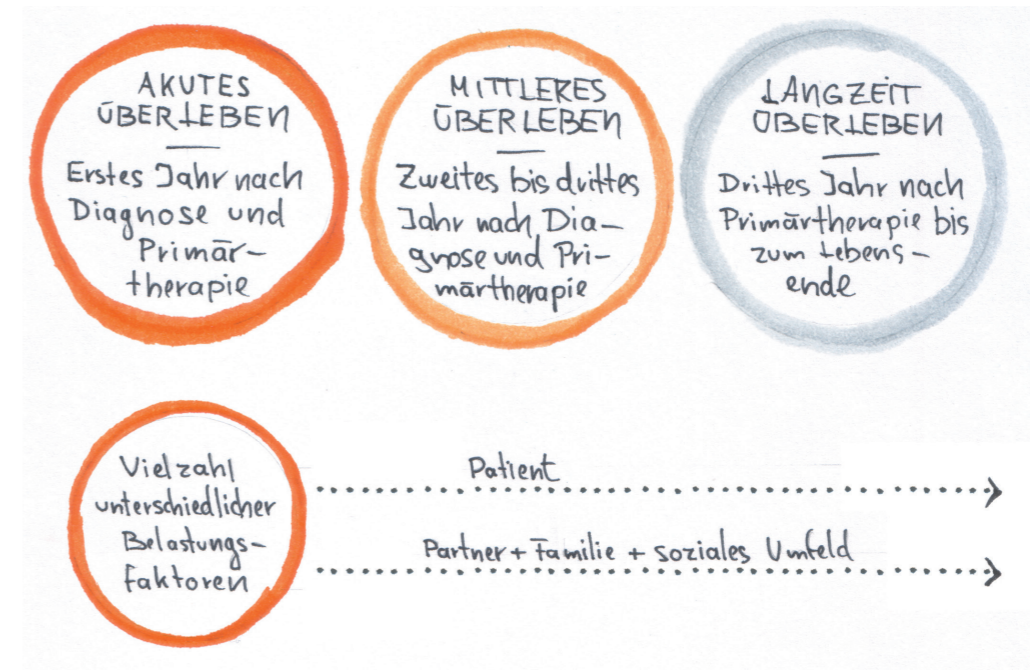 AKUTES
ÜBERLEBEN
Erstes Jahr nach
Diagnose und
Primär-
therapie
MITTLERES
ÜBERLEBEN
Zweites bis drittes
Jahr nach Dia-
gnose und Pri-
märtherapie
LANGZEIT
ÜBERLEBEN
Drittes Jahr nach
Primärtherapie bis
zum Lebens-
ende
Vielzahl
unterschiedlicher
Belastungs-
faktoren
Patient
Partner + Familie + soziales Umfeld